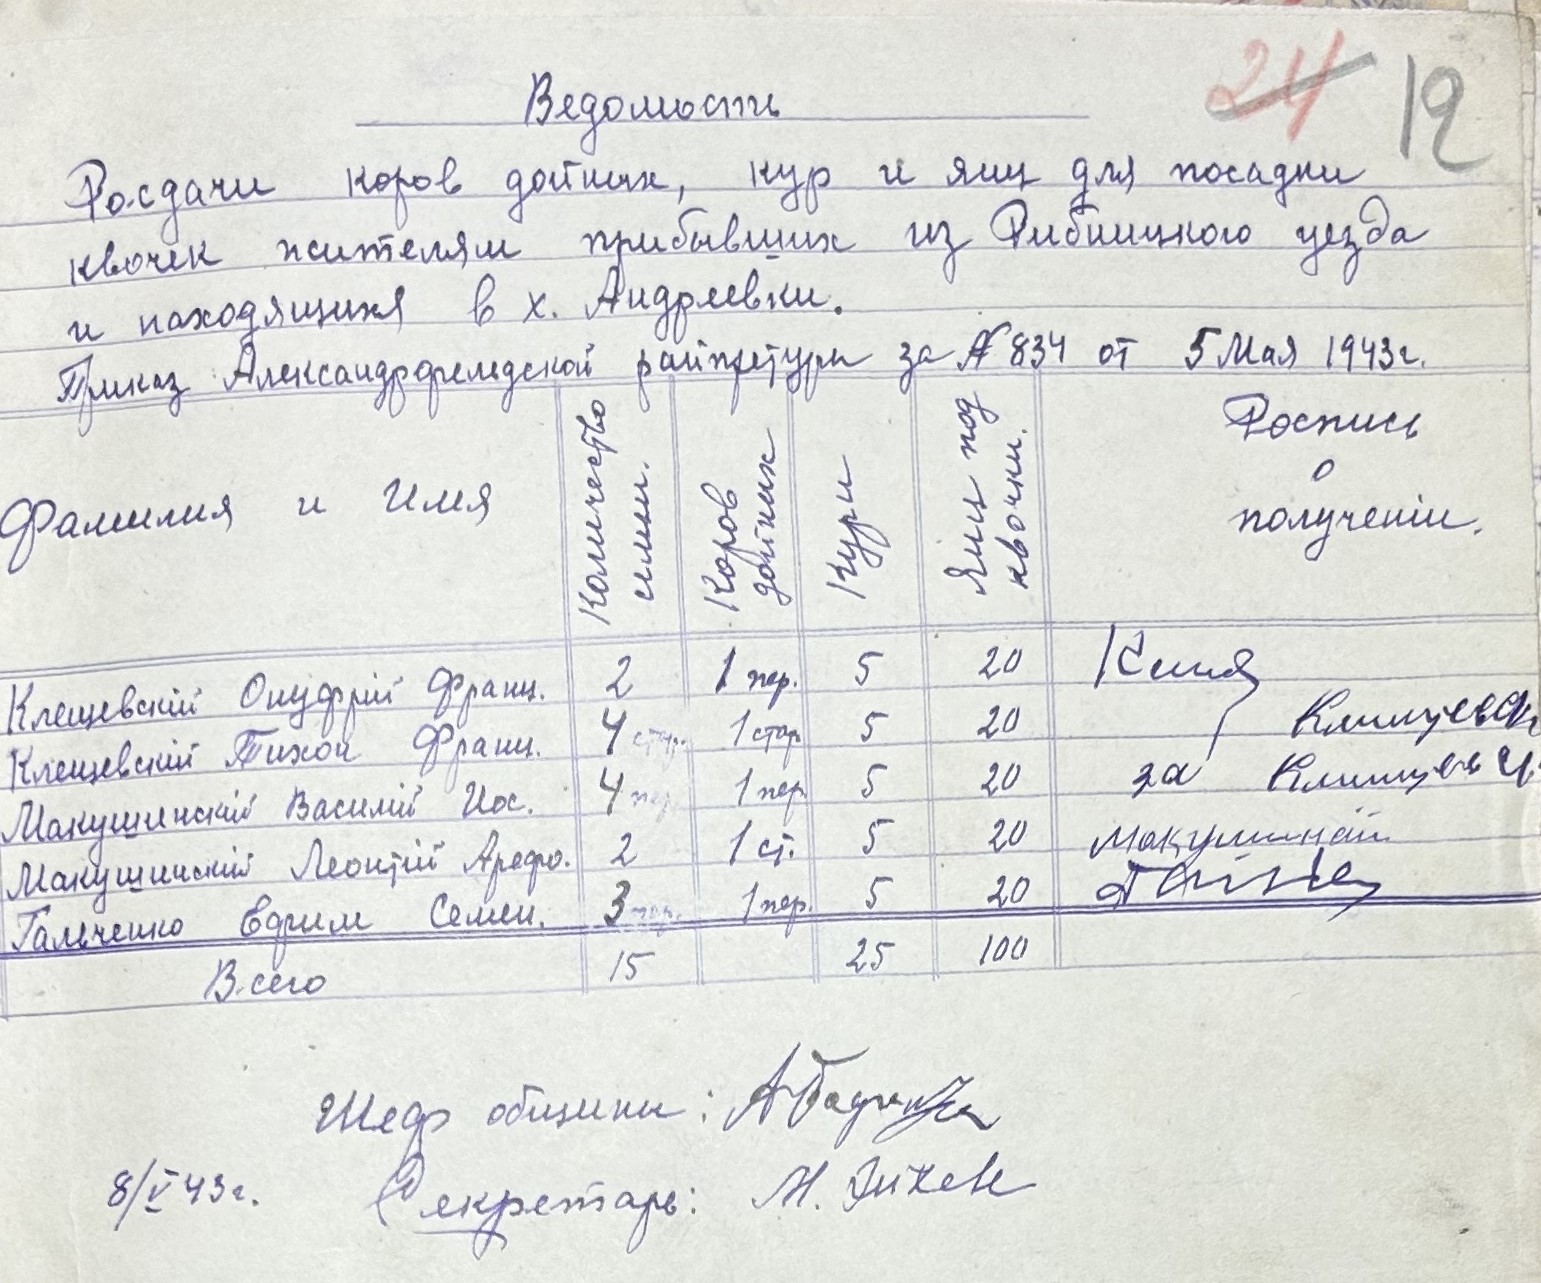 24 12
Ведомость
Росдачи коров дойных, кур и яиц для посадки
квочек жителям прибывших из Рибницкого уезда
и находящихся в х. Андреевки.
Приказ Александрфельдской райпретуры за № 834 от 5 Мая 1943 г.
Фамилия и Имя Количество семьи. Коров дойных Кури Яиц под квочки. Роспись о получении.
Клещевский Онуфрий Франц. 2 1 пер. 5 20
Клещевский Тихон Франц. 4 стар. 1 стар 5 20
Макушинский Василий Иос. 4 пер. 1 пер. 5 20 за
Макушинский Леонтий Арефо. 2 1 ст. 5 20
Гальченко Ефим Семен. 3 пер. 1 пер. 5 20
Всего 15 25 100
Шеф общины:
8/V 43 г. Секретарь: